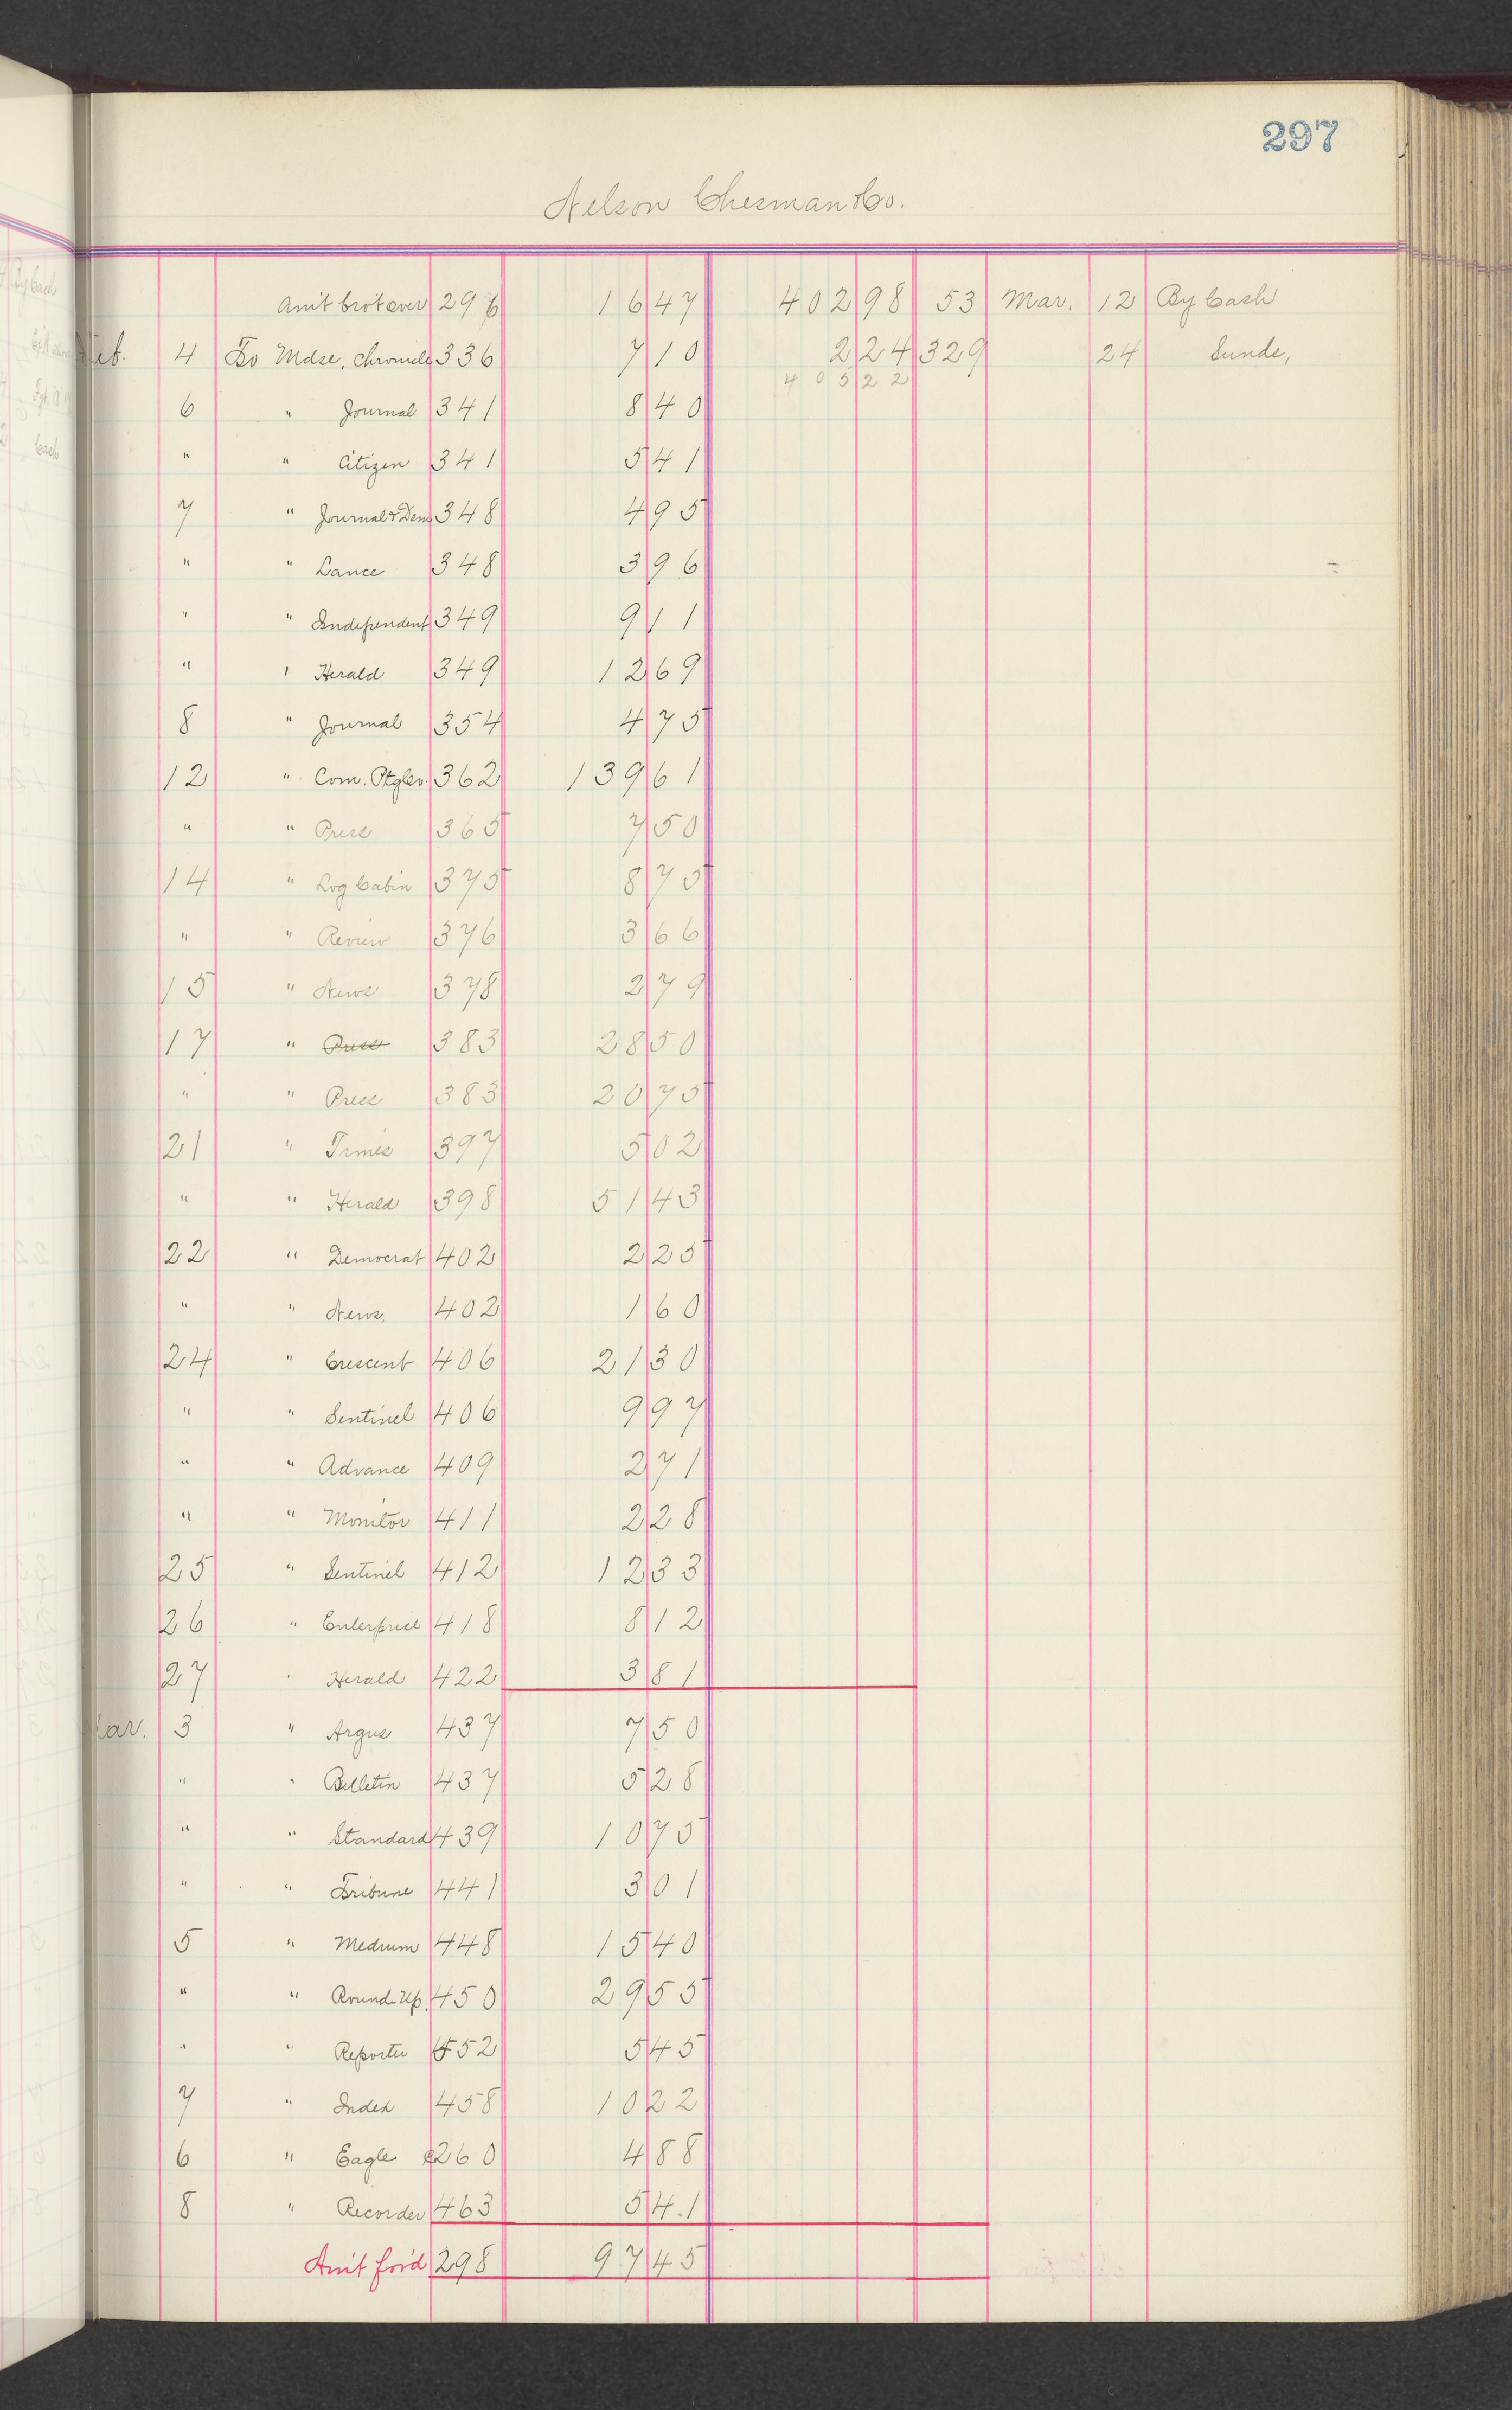 297
Nelson Chesman & Co.
Am't bro't over 296 16 47 402 98 53 Mar. 12 By Cash
Feb. 4 To Mdse, Chronicle 336 7 10 2 24 329 24 Sunds,
405 22
6 " Journal 341 8 40
" " Citizen 341 5 41
7 " Journal & Dem 348 4 95
" " Lance 348 3 96
" " Independent 349 9 11
" " Herald 349 12 69
8 " Journal 354 4 75
12 " Com. Ptg Co. 362 139 61
" " Press 365 7 50
14 " Log Cabin 375 8 75
" " Review 376 3 66
15 " News 378 2 79
17 " Press 383 28 50
" " Press 383 20 75
21 " Times 397 5 02
" " Herald 398 51 43
22 " Democrat 402 2 25
" " News, 402 1 60
24 " Crescent 406 21 30
" " Sentinel 406 9 97
" " Advance 409 2 71
" " Monitor 411 2 28
25 " Sentinel 412 12 33
26 " Enterprise 418 8 12
27 " Herald 422 3 81
Mar. 3 " Argus 437 7 50
" " Bulletin 437 5 28
" " Standard 439 10 75
" " Tribune 441 3 01
5 " Medium 448 15 40
" " Round-Up. 450 29 55
" " Reporter 452 5 45
7 " Index 458 10 22
6 " Eagle 260 4 88
8 " Recorder 463 5 41
Am't for'd 298 97 45